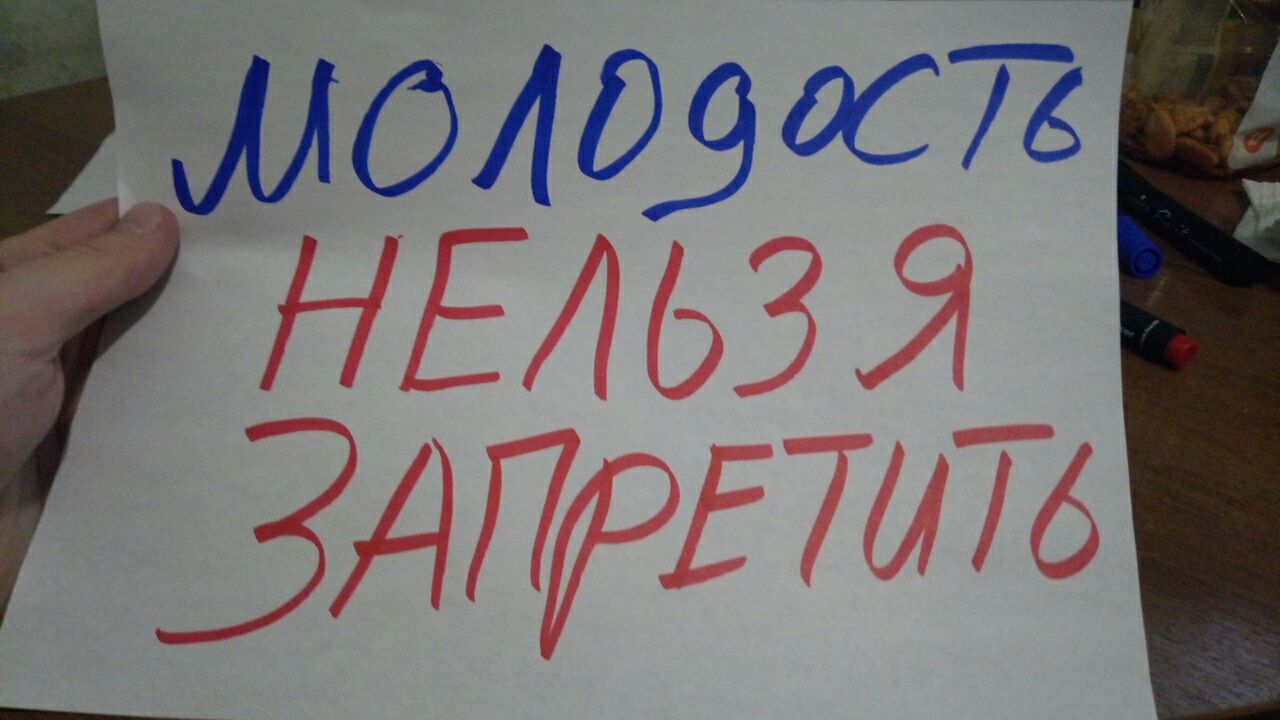 МОЛОДОСТЬ
НЕЛЬЗЯ
ЗАПРЕТИТЬ